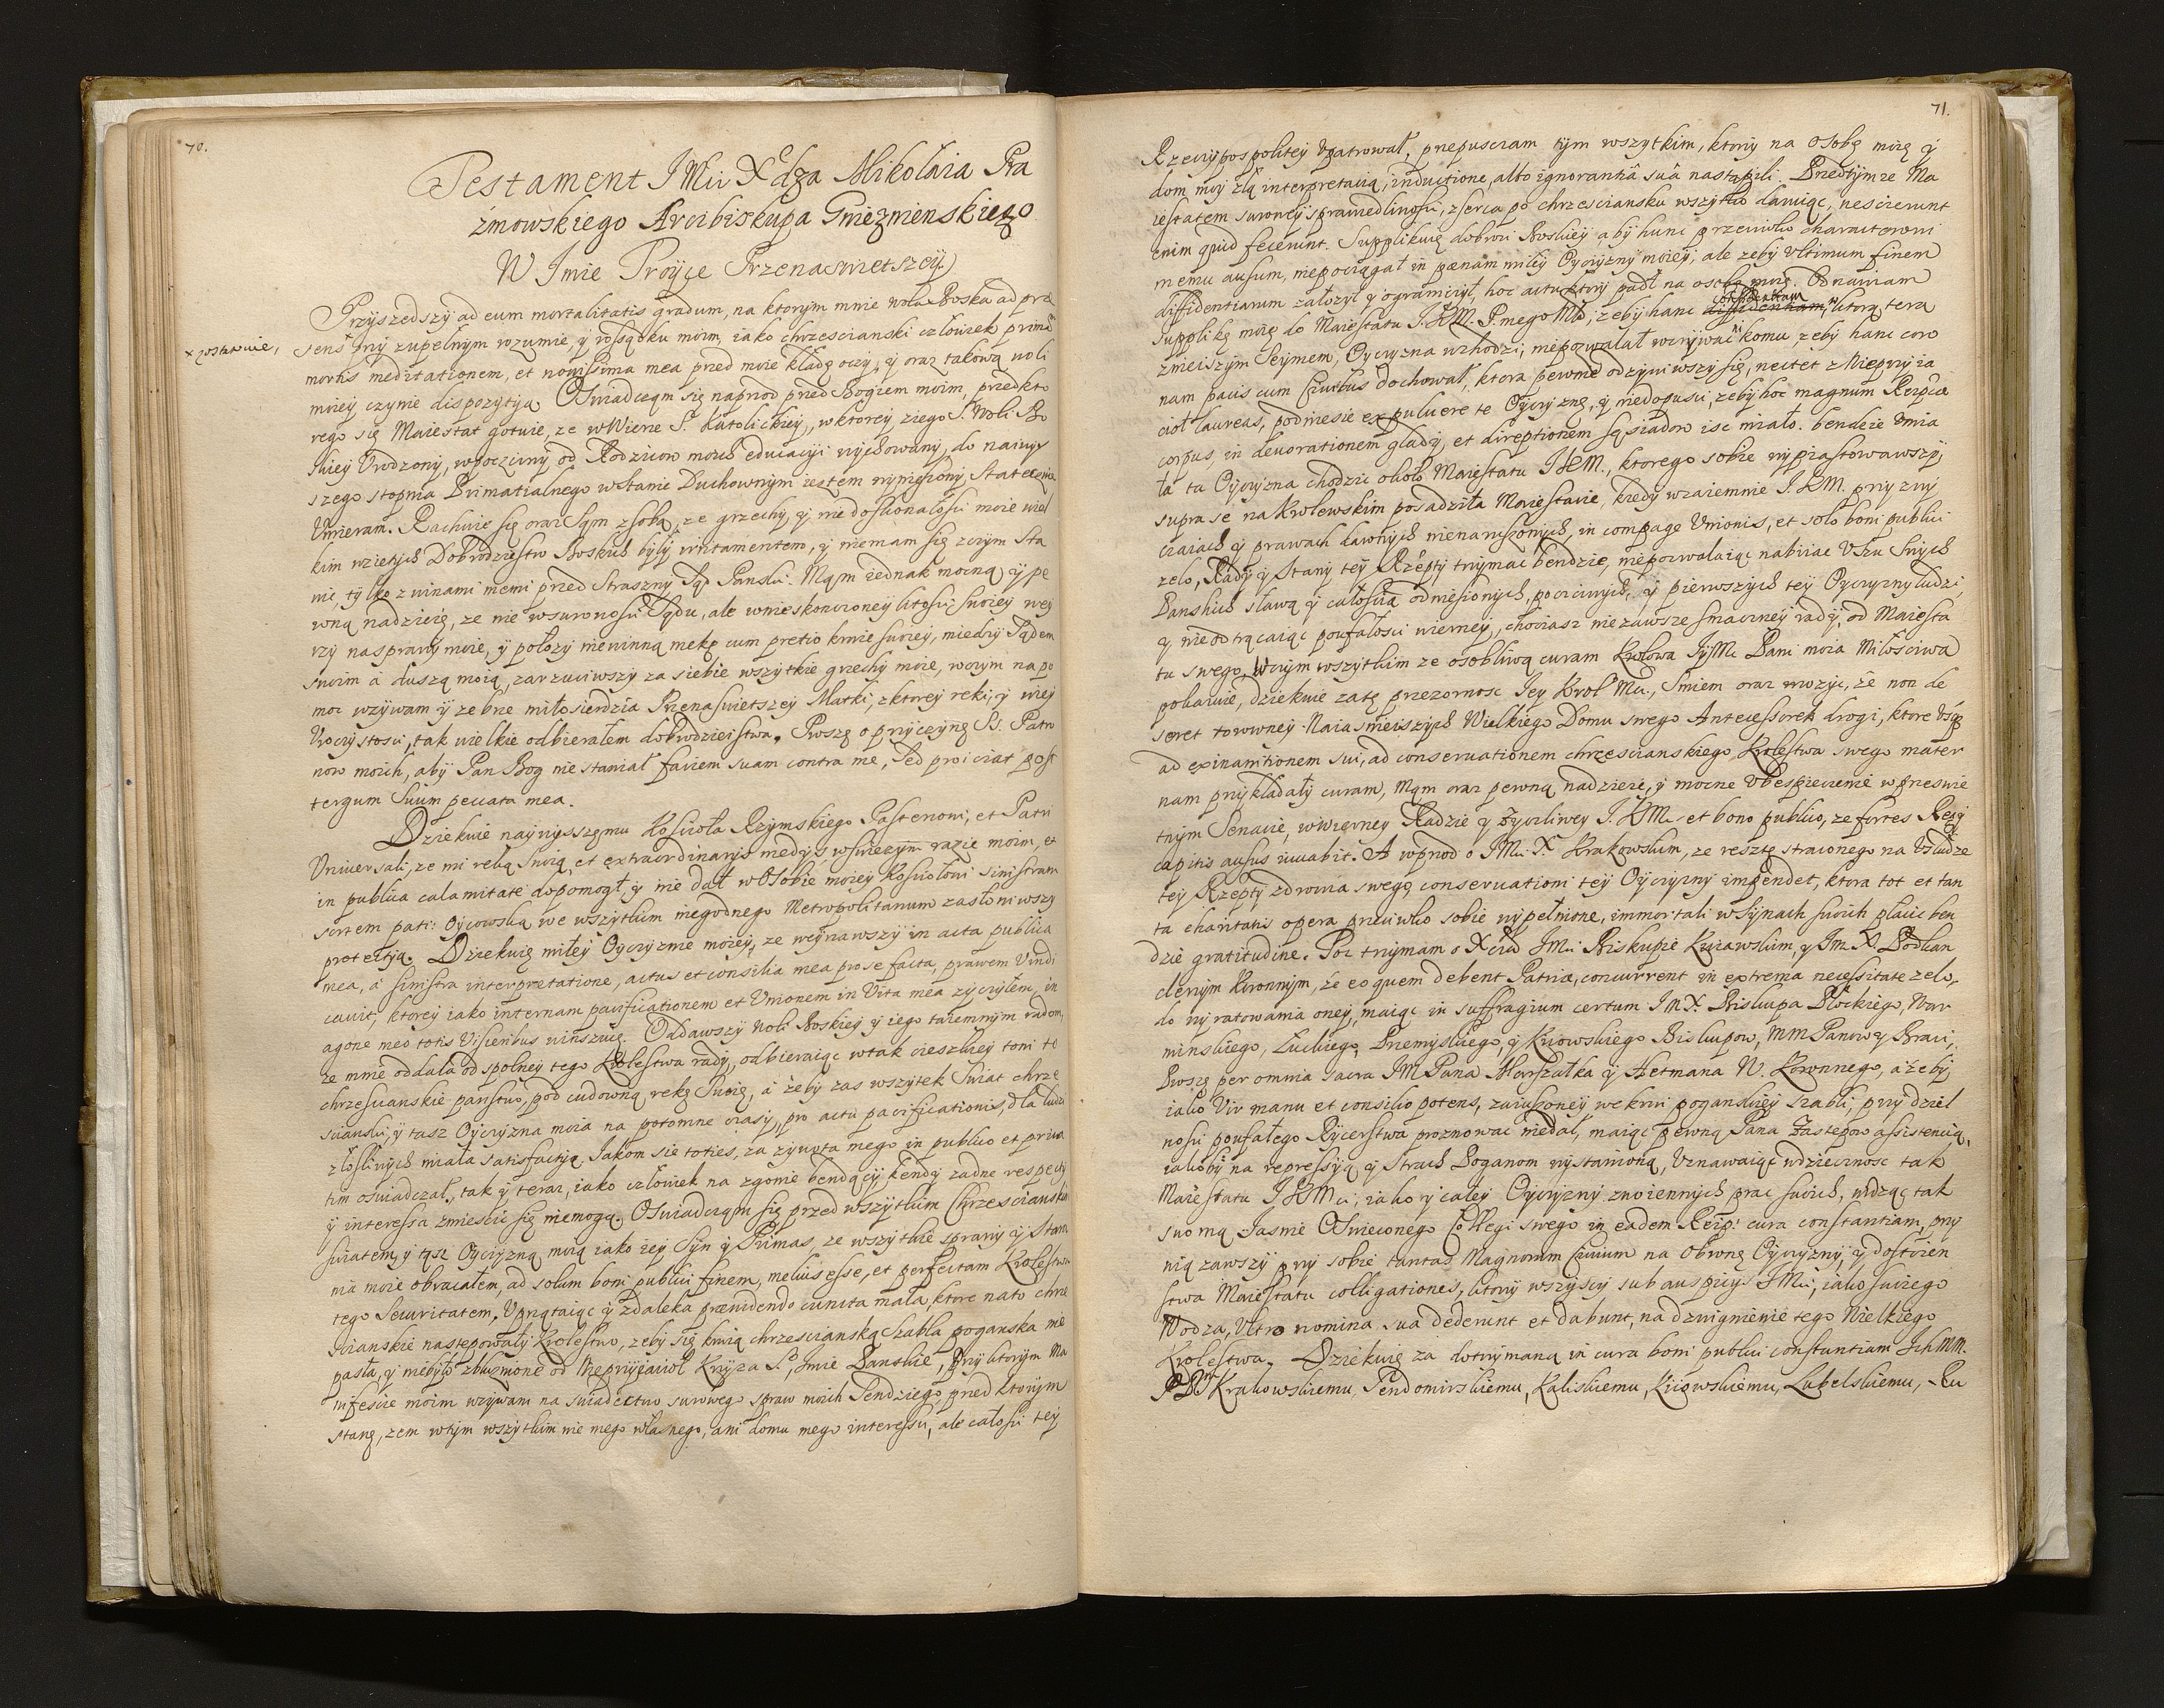 70.
Testament JMci Xdza Mikołaia Pra
żmowskiego Arcibiskupa Gnieznienskiego
W Jmie Troyce Przenaswietszey.
Przyszedszy ad eum mortalitatis gradum, na ktorym mnie wola Boska ad præ
x zostawuie, sens przy zupełnym rozumie, y rossądku moim, iako chrzescianski człowiek
mortis meditationem, et novissima mea przed moie kładę oczy, y oraz takową woli
moiey czynie dispozytią. Oswiadczam się naprzod przed Bogiem moim, przed kto
rego się Maiestat gotuie, ze w Wierze S. Katolickiey, w ktorey z iego S. Woli Bo
skiey Urodzony, w poczciwey od Rodzicow moich educatiyi wychowany, do naiwyz
szego stopnia Primatialnego w stanie Duchownym iestem wyniesiony, statecznie
Umieram. Rachuie się oraz sam z sobą, ze grzechy, y niedoskonałosci moie wiel
kim wziętych Dobrodzieystw Boskich były irritamentem, y niemam się z czym sta
nie, tylko z winami memi przed straszny Sąd Panski. Mam iednak mocną y pe
wną nadzieię, ze nie w surowosci Sądu, ale w nieskonczoney litosci swoiey wey
rzy na sprawy moie, y położy niewinną mękę cum pretio krwie swoiey, miedzy Sądem
swoim a duszą moią, zarzuciwszy za siebie wszytkie grzechy moie, w czym na po
moc wzywam y zebrze miłosierdzia Przenaswietszey Matki, z ktorey ręki, y w iey
Uroczystosci, tak wielkie odbierałem dobrodzieistwa. Proszę o przyczynę SS. Patro
now moich, aby Pan Bog nie stawiał faciem suam contra me, sed proiiciat post
tergum suum peccata mea.
Dziekuie naywysszemu Kosciola Rzymskiego Pasterzowi, et Patri
Universali, ze mi ręką swoią, et extraordinarys medys, w swieżym razie moim, et
in publica calamitate dopomogł, y nie dał w Osobie moiey Kosciołowi sinistram
sortem pati: Oycowską, we wszytkim niegodnego Metropolitanum zasłoniwszy
protectią. Dziekuię miłey Oyczyznie moiey, ze weyrzawszy in acta publica
mea, a sinistra interpretatione, actus et consilia mea pro se facta, prawem vindi
cavit, ktorey iako internam pacificationem et Unionem in Vita mea zyczyłem, in
agone meo totis Visceribus winszuię. Oddawszy woli Boskiey y iego taiemnym radom,
ze mnie oddala od społney tego Krolestwa rady, odbieraiąc w tak cieszkiey toni to
chrzescianskie panstwo, pod cudowną rękę swoię, a żeby zas wszytek Swiat chrze
scianski, y tasz Oyczyzna moia na potomne czasy, pro actu pacificationis, dla ludzi
złosliwych miała satisfactią. Jakom sie toties, za zywota mego in publico et priva
tim oswiadczał, tak y teraz, iako człowiek na zgonie bendący kendy zadne respecty
y interessa zmiescic się niemogą. Oswiadczam się przed wszytkim Chrzescianskim
swiatem, y tąsz Oyczyzną moią iako iey Syn y Primas, ze wszytkie sprawy y stara
nia moie obracałem, ad solum boni publici finem, melius esse, et perfectam Krolestwa
tego Securitatem. Uprzątaiąc y zdaleka prævidendo cuncta mala, ktore na to chrze
scianskie nastepowały Krolestwo, zeby się krwią chrzescianską Szabla poganska nie
pasła, y niebyło zbluznione od Nieprzyiacioł Krzyza S. Jmie Panskie, Przy ktorym Ma
nifescie moim wzywam na swiadectwo surowego spraw moich Sendziego, przed ktorym
stanę, zem w tym wszytkim nie mego własnego, ani domu mego interessu, ale całosci tey
71.
Rzeczypospolitey Upatrował, przepuszczam tym wszytkim, ktorzy na Osobę moię y
dom moy złą interpretatią, inductione, albo ignorantiâ suâ nastąpili. Przedtym ze Ma
iestatem surowey sprawiedlinosci, z serca po chrzesciansku wszytko daruiąc, nescierunt
enim quid fecerunt. Supplikuię dobroci Boskiey aby hunc przeciwko charakterowi
memu ausum, niepociągał in pœnam miłey Oyczyzny moiey, ale zeby Ultimum finem
diffidentiarum załozył y ograniczył, hoc actu, ktory padł na osobę moię. Odnawiam
supplikę moię do Maiestatu J.K.M. P. mego M°, zeby hanc confidentiam, w ktorą tera
znieiszym Seymem, Oyczyzna wchodzi, niepozwalał wrzywac komu, zeby hanc coro
nam pacis cum Civibus dochował, ktora pewnie odzywiwszy się, neciet z Nieprzyia
cioł laureas, podniesie ex pulvere te Oyczyznę, y niedopusci, zeby hoc magnum Reip.cæ
corpus, in devorationem gladij, et direptionem sąsiadow isc miało. bendzie Umia
ła ta Oyczyzna chodzic około Maiestatu JKM., ktorego sobie wypiastowawszy,
supra se na Krolewskim posadziła Maiestacie, kiedy wzaiemnie J.K.M. przy zwy
czaiach y prawach dawnych nienaruszonych, in compage Unionis, et solo boni publici
zelo, Rady y Stany tey Rzepty trzymac bendzie, niepozwalaiąc nabiiac Uszu Swych
Panskich sławą y całoscią odniesionych, poczciwych, y pierwszych tey Oyczyzny ludzi,
y nieodtrącaiąc poufałosci wierney, chociasz niezawsze smaczney rady, od Maiesta
tu swego, W czym wszytkim ze osobliwą curam Krolowa JeyMc Pani moia Miłosciwa
pokazuie, dziekuie za tę przezornosc Jey Krol. Mci, Smiem oraz wrozyc, że non de
seret torowney Naiasnieiszych Wielkiego Domu swego Antecessorek drogi, ktore Usque
ad exinanitionem sui, ad conservationem chrzescianskiego Krolestwa swego mater
nam przykładały curam, Mam oraz pewną nadzieie, y mocne Ubespieczenie w przeswie
tnym Senacie, w wierney Radzie y zyczliwey J.K.M. et bono publico, ze fortes Regij
capitis ausus iuvabit. A w przod o JMci X. Krakowskim, ze resztę straconego na Usłudze
tey Rzepty zdrowia swego, conservationi tey Oyczyzny impendet, ktora tot et tan
ta charitatis opera przeciwko sobie wypełnione, immortali w Synach swoich płacic ben
dzie gratitudine. Toz trzymam o Xciu JMci Biskupie Kuiawskim, y Jm X. Podkan
clerzym Koronnym, że eo quem debent Patriæ, concurrent in extrema necessitate zelo,
do wyratowania oney, maiąc in suffragium certum JmX. Biskupa Płockiego, War
minskiego, Łuckiego, Przemyskiego, y Kiiowskiego Biskupow, MM Panow y Braci,
Proszę per omnia sacra JMPana Marszałka y Hetmana W. Koronnego, ażeby
iako Vir manu et consilio potens, zaiuszoney we krwi poganskiey szabli, przy dziel
nosci poufałego Rycerstwa proznowac niedał, maiąc pewną Pana Zastępow assistencią,
iakoby na repressyą y strach Poganom wystawioną, Uznawaiąc wdziecznosc tak
Maiestatu JKMci, iako y całey Oyczyzny zwoiennych prac swoich, widząc tak
suo mą Jasnie Oswieconego Collegi swego in eadem Reip. cura constantiam, przy
wiązawszy przy sobie tantas Magnorum Civium na Obronę Oyczyzny, y dostoien
stwa Maiestatu colligationes, ktorzy wszyscy sub auspicijs JMci, iako swoiego
Wodza, Ultro nomina sua dederunt et dabunt, na dzwignienie tego Wielkiego
Krolestwa. Dziekuię za dotrzymaną in cura boni publici constantiam Jch MM.
PP. Krakowskiemu, Sendomirskiemu, Kaliskiemu, Kiiowskiemu, Lubelskiemu, Ru